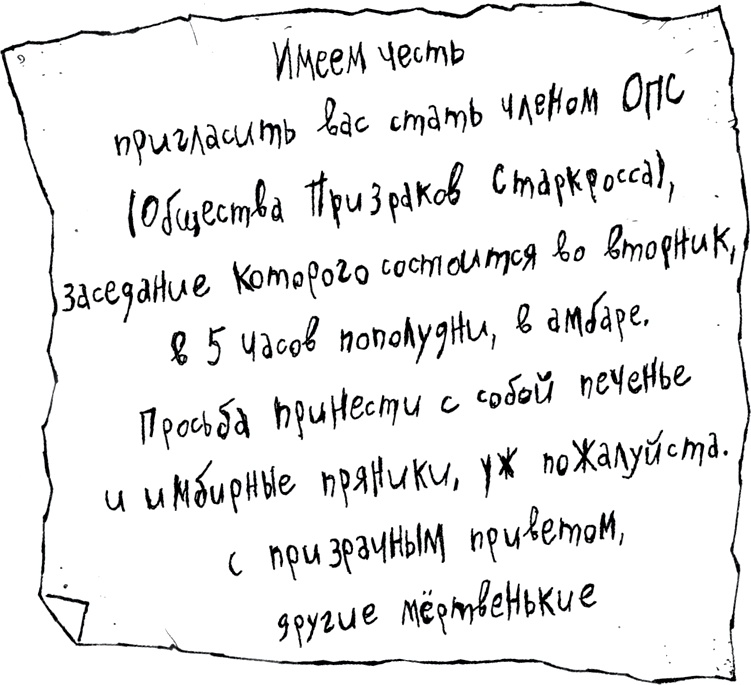 Имеем честь
пригласить вас стать членом ОПС
(Общества Призраков Старкросса),
заседание которого состоится во вторник,
в 5 часов пополудни, в амбаре.
Просьба принести с собой печенье
и имбирные пряники, уж пожалуйста.
с призрачным приветом,
другие мёртвенькие